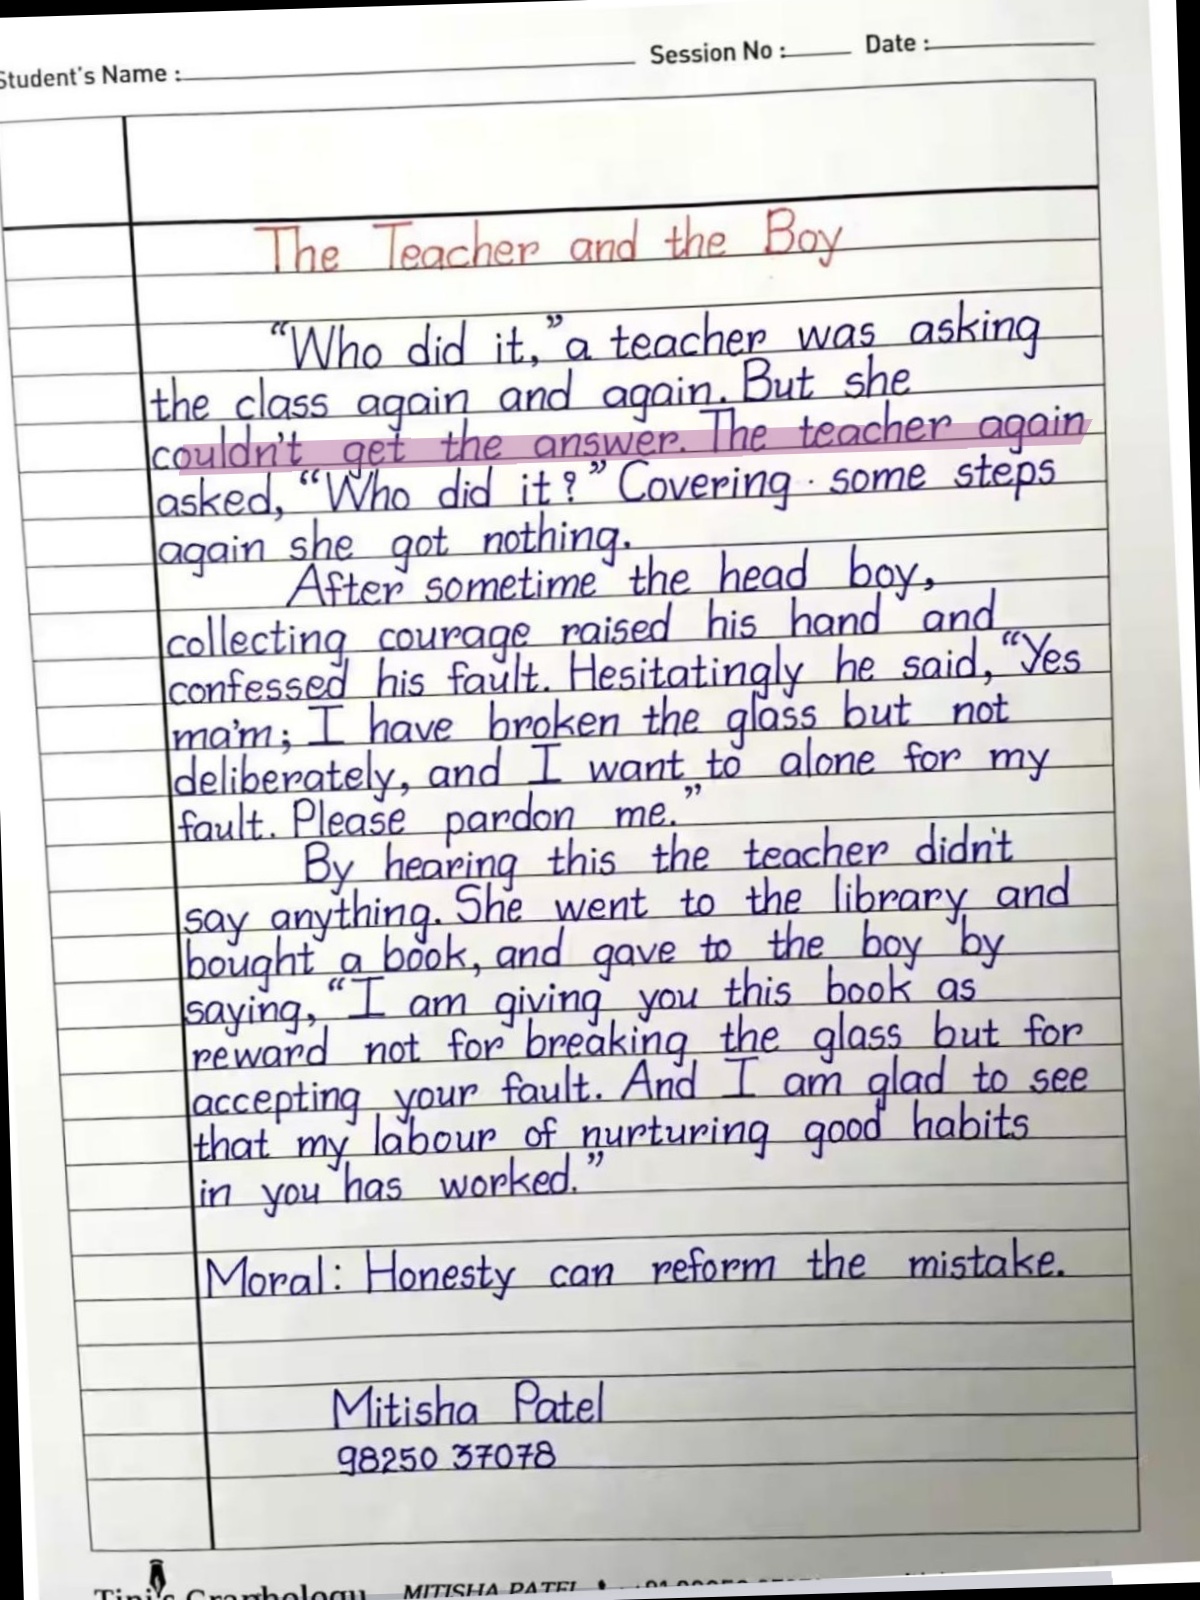 Student's Name :
Session No : Date :
The Teacher and the Boy
“Who did it,” a teacher was asking
the class again and again. But she
couldn't get the answer. The teacher again
asked, “Who did it?” Covering some steps
again she got nothing.
After sometime the head boy,
collecting courage raised his hand and
confessed his fault. Hesitatingly he said, “Yes
ma'm; I have broken the glass but not
deliberately, and I want to alone for my
fault. Please pardon me.”
By hearing this the teacher didn't
say anything. She went to the library and
bought a book, and gave to the boy by
saying, “I am giving you this book as
reward not for breaking the glass but for
accepting your fault. And I am glad to see
that my labour of nurturing good habits
in you has worked.”
Moral: Honesty can reform the mistake.
Mitisha Patel
98250 37078
Tini's Graphology MITISHA PATEL